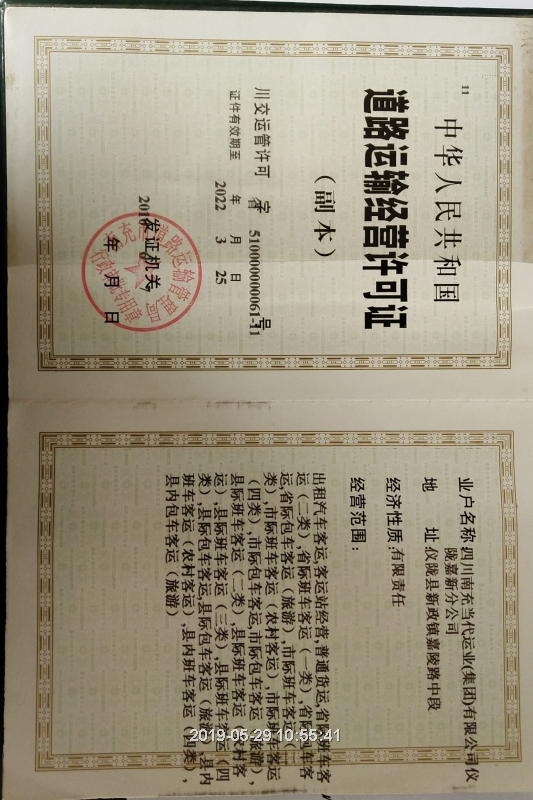 11
中华人民共和国
道路运输经营许可证
（副本）
川交运管许可 字 510000000061-11 号
证件有效期至 2022 年 3 月 25 日
发证机关
年 月 日
业户名称 四川南充当代运业(集团)有限公司仪
陇嘉新分公司
地 址 仪陇县新政镇嘉陵路中段
经济性质：有限责任
经营范围：
出租汽车客运,客运站经营,普通货运,省际班车客
运（二类）,省际班车客运（一类）,省际包车客
运,省际包车客运（旅游）,市际班车客运（二
类）,市际班车客运（农村客运）,市际班车客运
（四类）,市际包车客运,市际包车客运（旅游）,
县际班车客运（二类）,县际班车客运（农村客
运）,县际班车客运（三类）,县际班车客运（四
类）,县际包车客运,县际包车客运（旅游）,县内
班车客运（农村客运）,县内班车客运（四类）,
县内包车客运（旅游）
2019-05-29 10:55:41